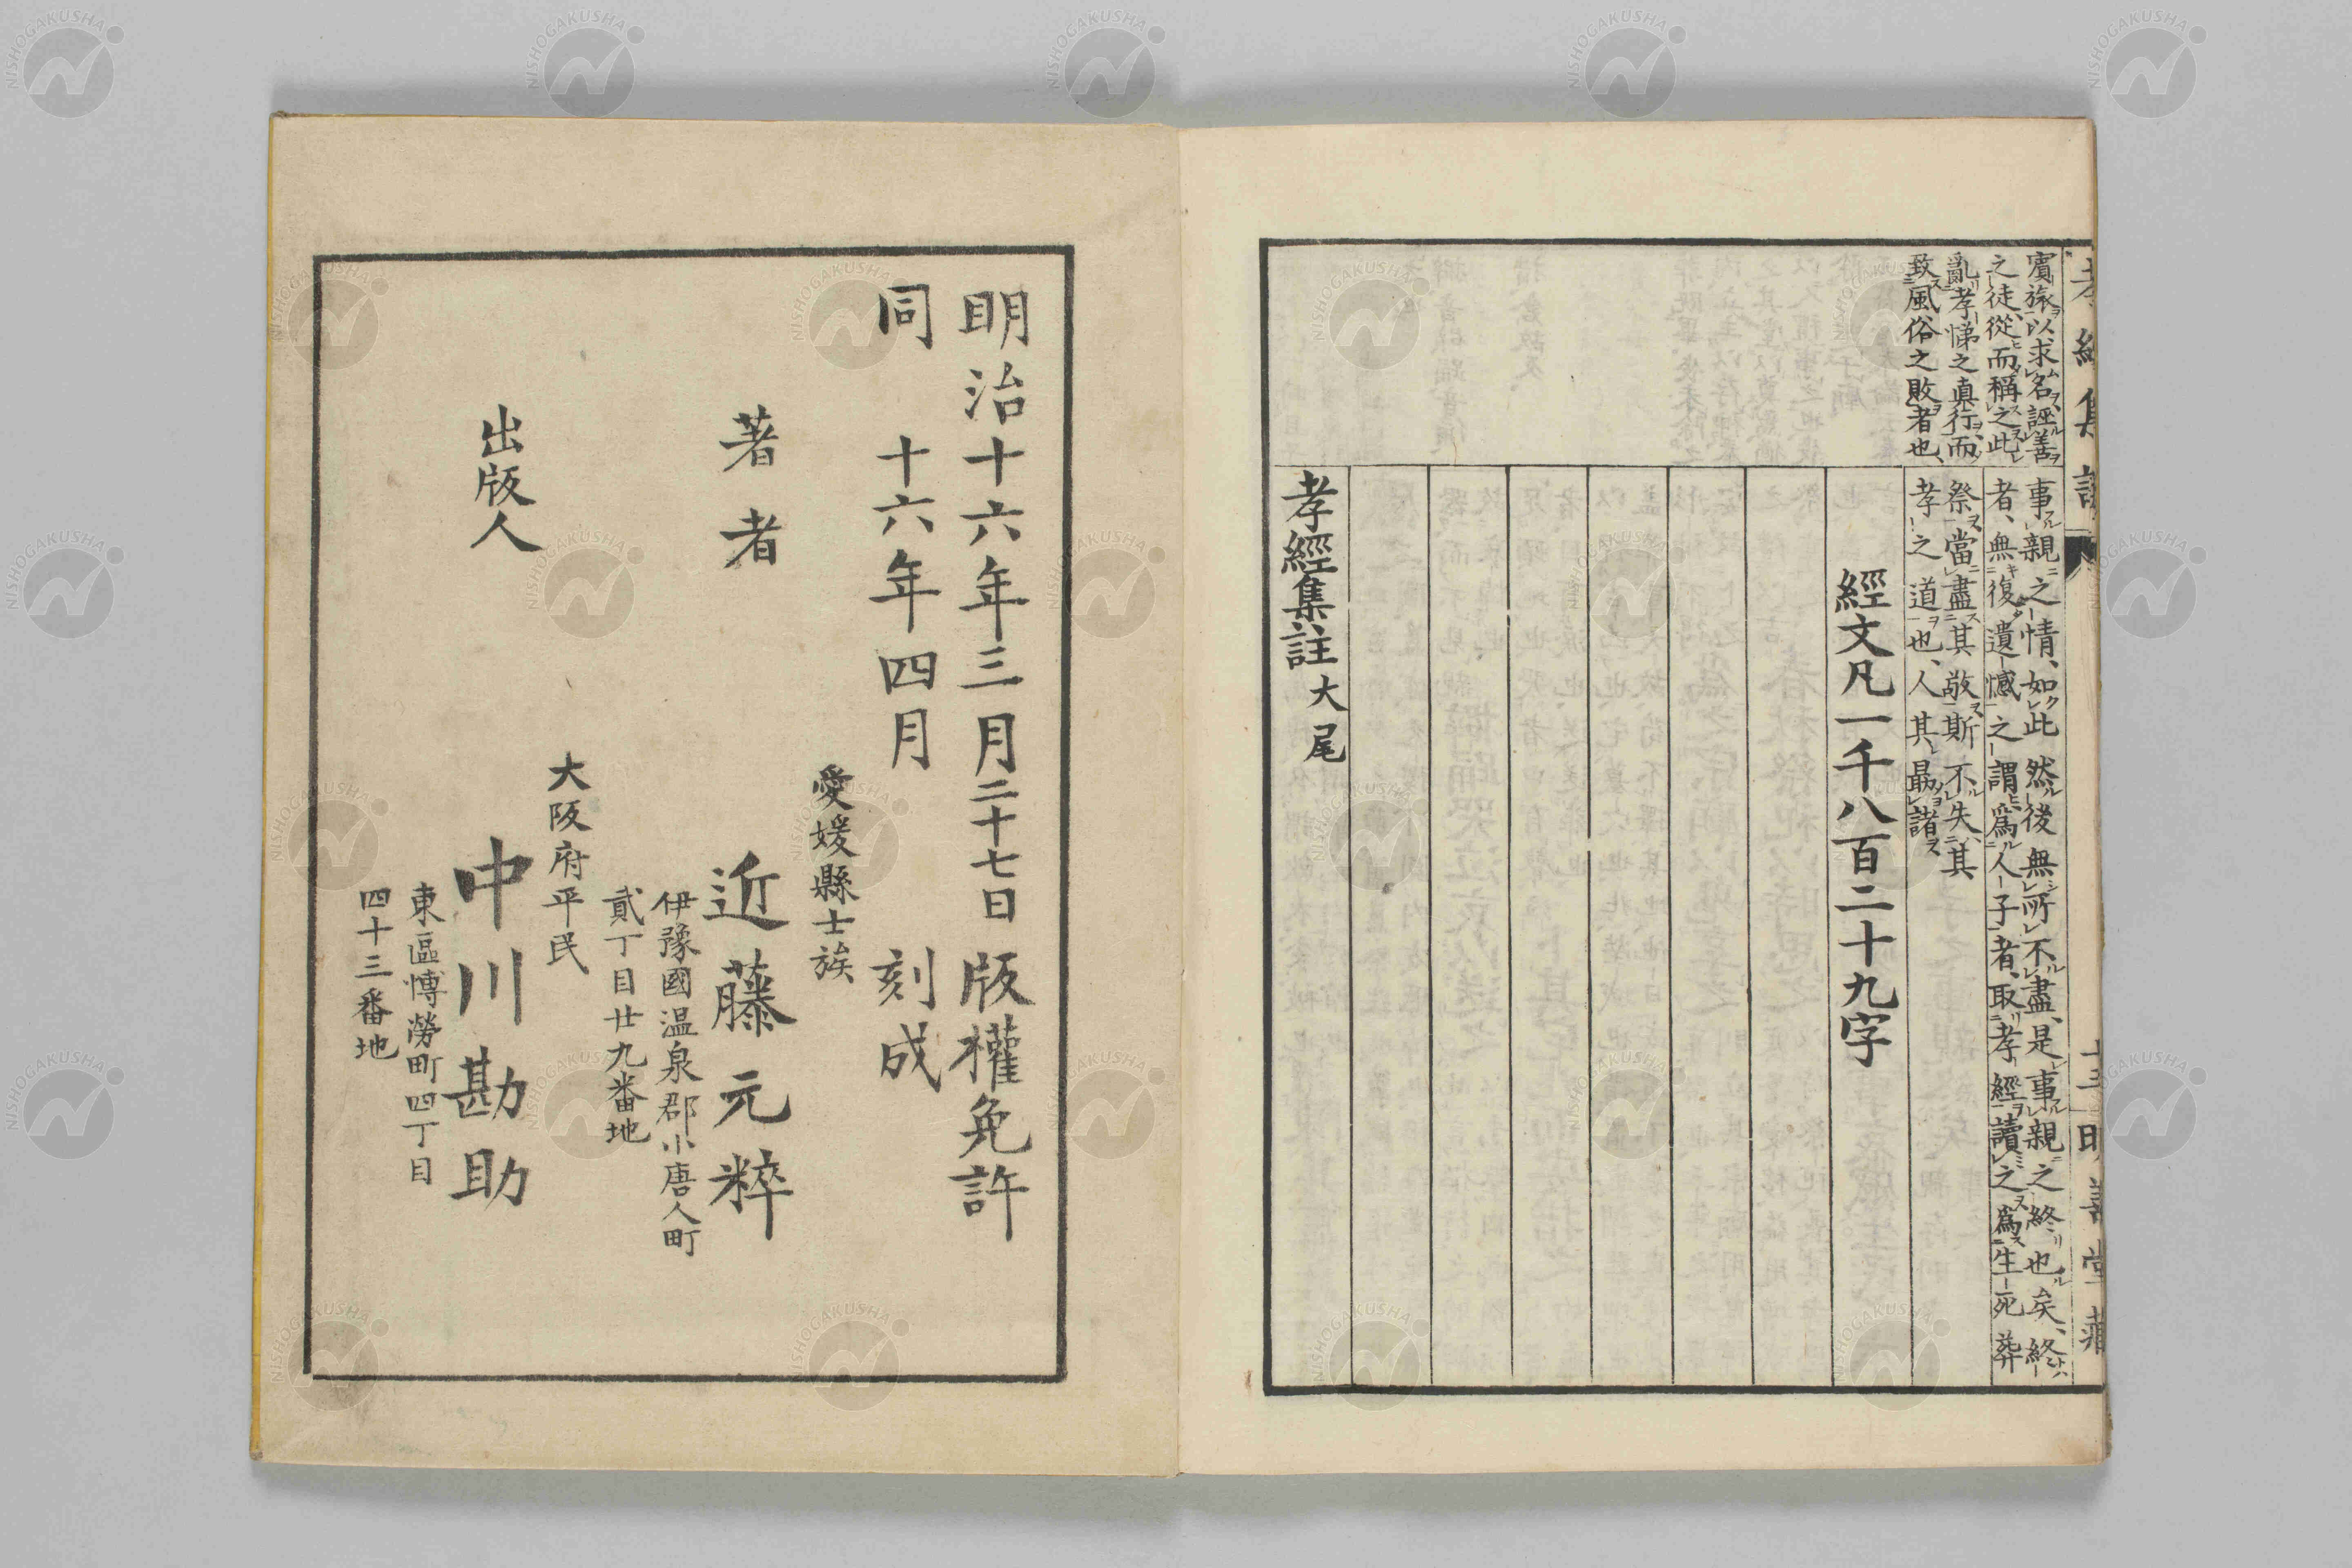 賓旅以求名誣善
之徒從而稱之此
亂孝悌之真行而
致風俗之敗者也
事親之情、如此然後無所不盡、是事親之終也矣、終
者、無復遺憾之謂爲人子者、取孝經讀之爲生死葬
祭當盡其敬斯不失其
孝之道也、人其最諸
經文凡一千八百二十九字
孝經集註大尾
明治十六年三月二十七日版權免許
同十六年四月刻成
愛媛縣士族
著者近藤元粹
伊豫國温泉郡小唐人町
貳丁目廿九番地
大阪府平民
出版人中川勘助
東區博勞町四丁目
四十三番地
NISHOGAKUSHA